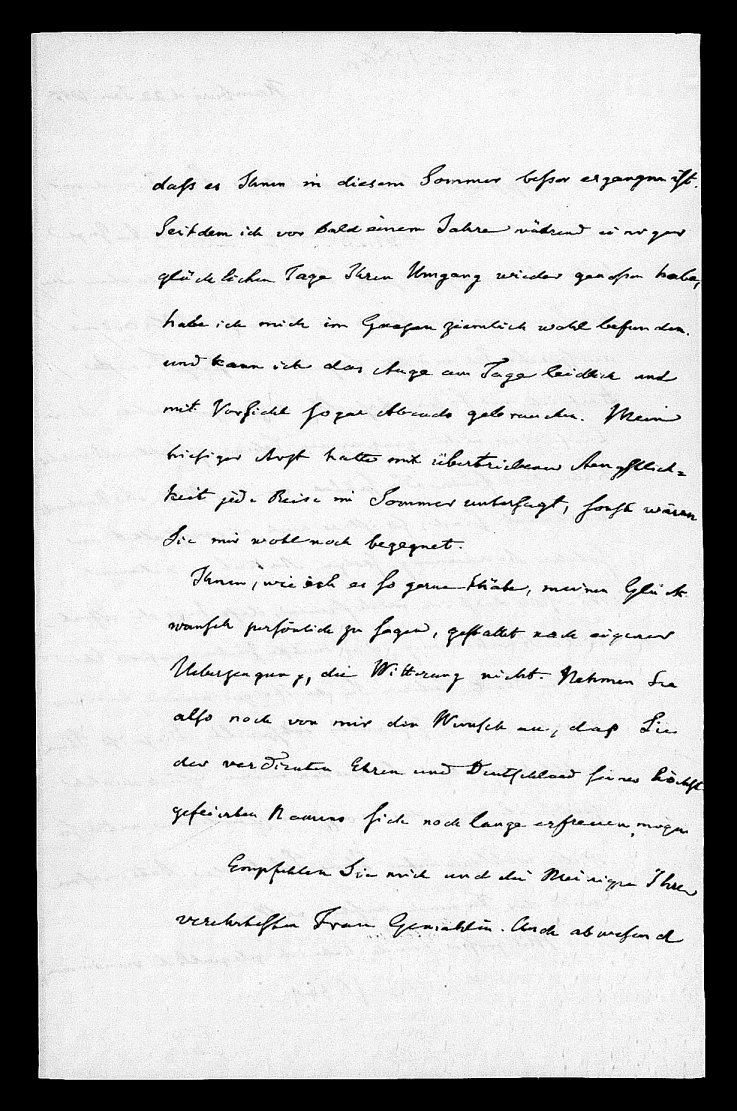 daß es Ihnen in diesem Sommer besser ergangen ist.
Seitdem ich vor bald einem Jahre während einiger
glücklichen Tage Ihren Umgang wieder genossen habe,
habe ich mich im Ganzen ziemlich wohl befunden.
und kann ich das Auge am Tage leidlich und
mit Vorsicht sogar Abends gebrauchen. Mein
hiesiger Arzt hatte mit übertriebener Aengstlich=
keit jede Reise im Sommer untersagt, sonst wären
Sie mir wohl noch begegnet.
Ihnen, wie ich es so gerne thäte, meinen Glück
wunsch persönlich zu sagen, gestattet nach eigener
Ueberzeugung, die Witterung nicht. Nehmen Sie
also noch von mir den Wunsch an, daß Sie
der verdienten Ehren und Deutschland seines höchst
gefeierten Namens sich noch lange erfreuen mögen
Empfehlen Sie mich und die Meinigen Ihrer
verehrtesten Frau Gemahlin. Auch abwesend